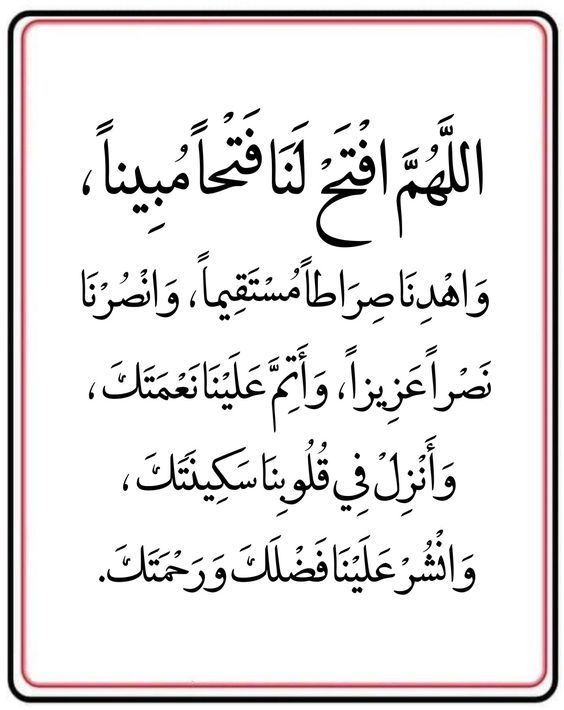 اللَّهُمَّ افْتَحْ لَنَا فَتْحاً مُبِيناً،
وَاهْدِنَا صِرَاطاً مُسْتَقِيماً، وَانْصُرْنَا
نَصْراً عَزِيزاً، وَأَتِمَّ عَلَيْنَا نَعْمَتَكَ،
وَأَنْزِلْ فِي قُلُوبِنَا سَكِينَتَكَ،
وَانْشُرْ عَلَيْنَا فَضْلَكَ وَرَحْمَتَكَ.